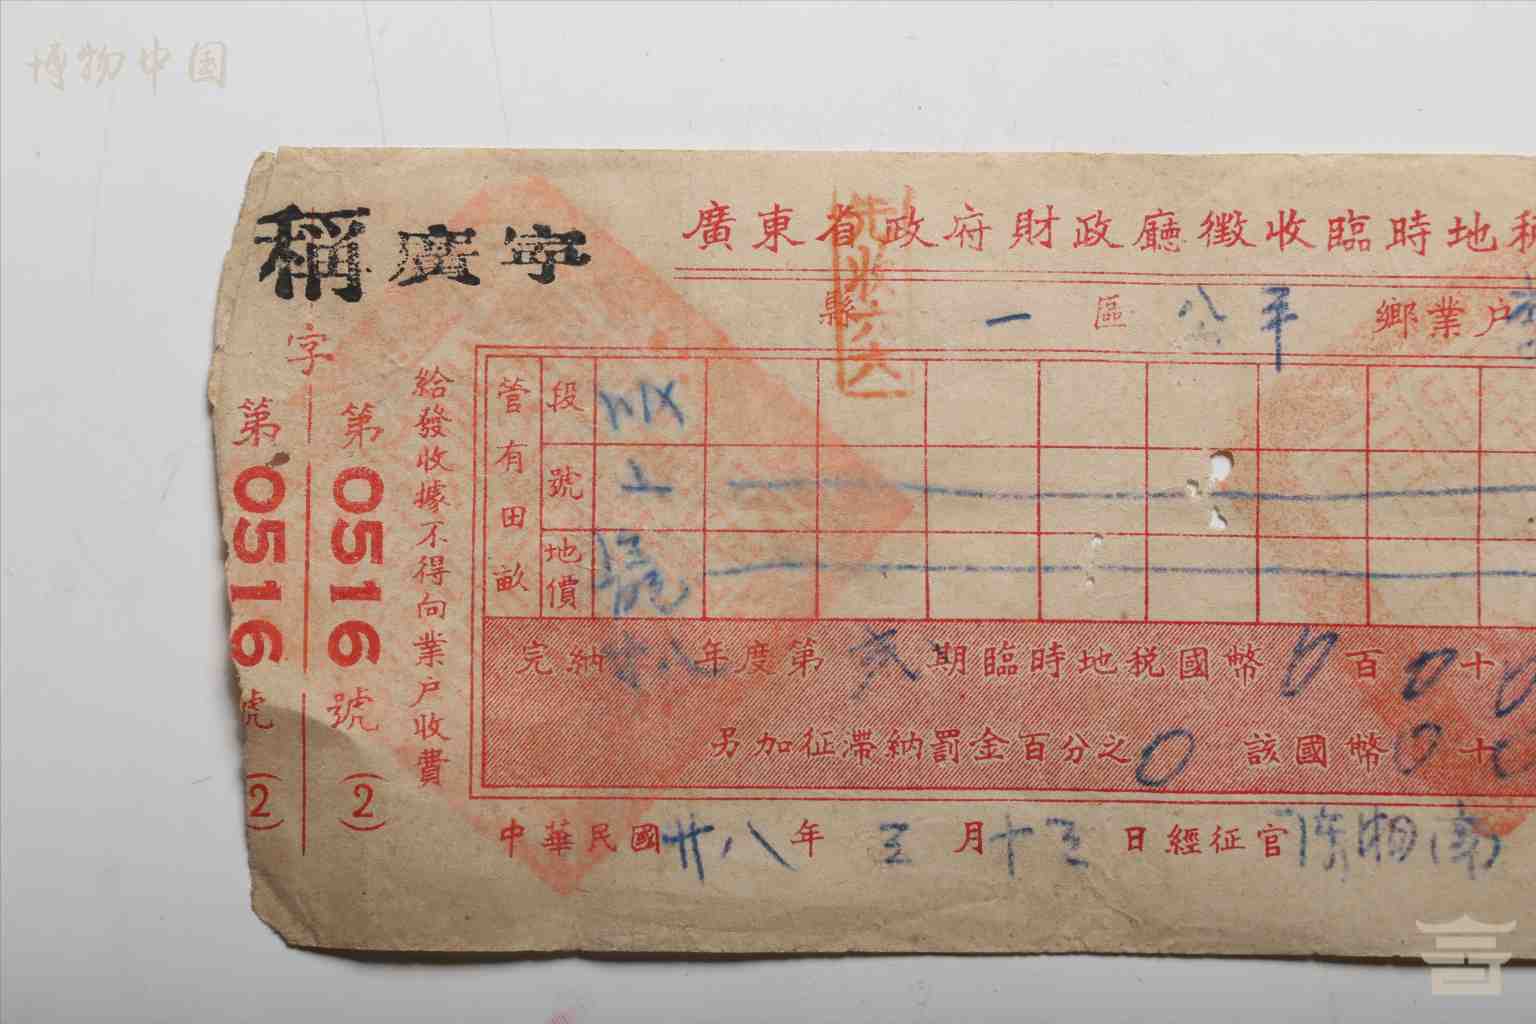 博物中国
稱 廣寧
廣東省政府財政廳徵收臨時地稅
縣 一 區 八平 鄉業户
字
第 05161 號 (2)
第 0516 號 (2)
給發收據不得向業户收費
管有田畝
段
號
地價
完納廿八年度第 貳 期臨時地税國幣 0 百 0 十 0
另加征滯納罰金百分之 0 該國幣 0 十
中華民國廿八年 三 月十三日經征官